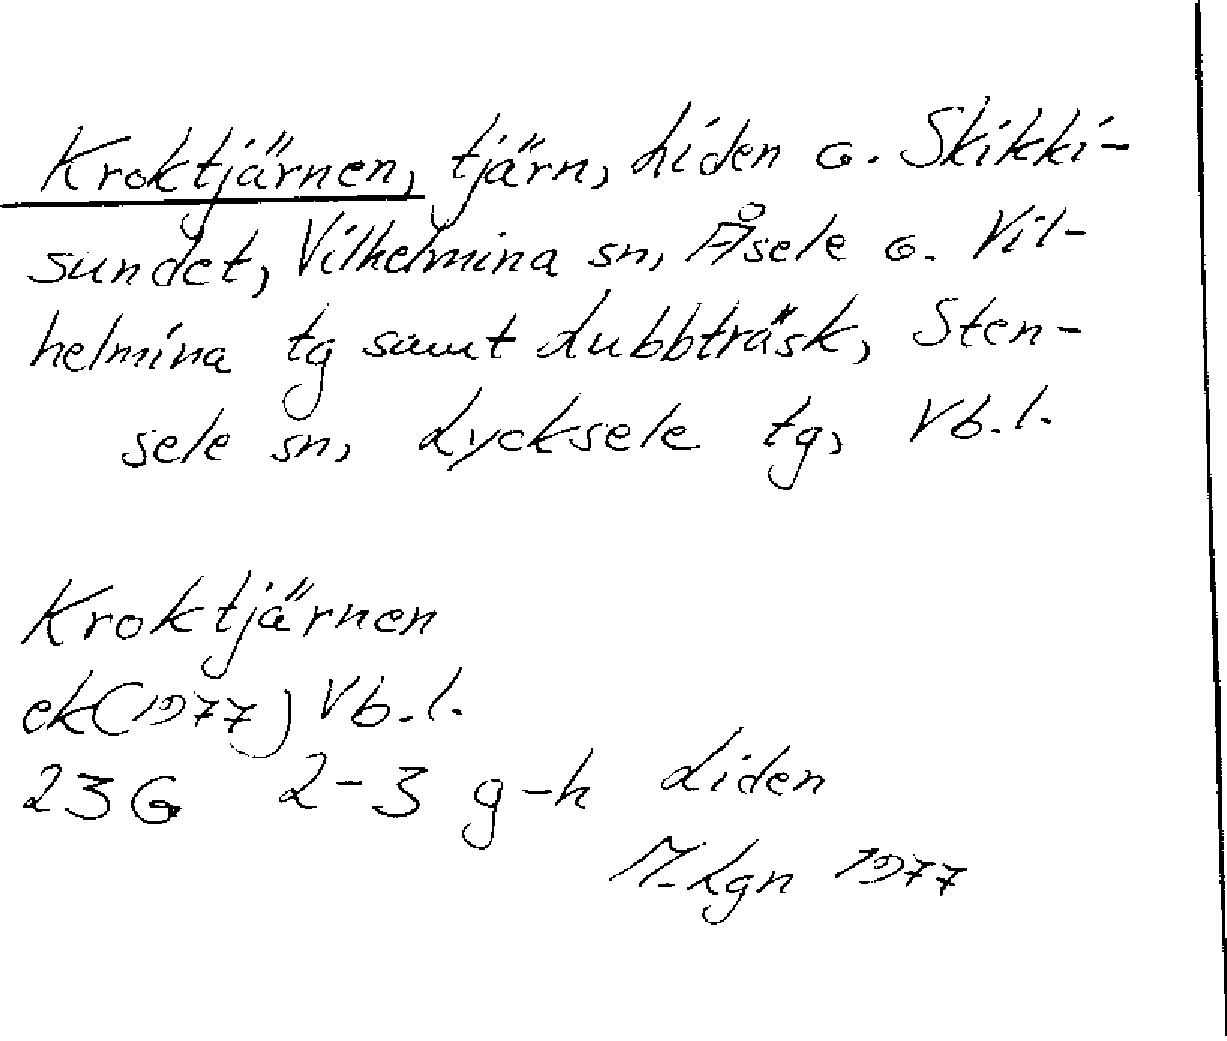 Kroktjärnen, tjärn, Liden o. Skikki-
sundet, Vilhelmina sn, Åsele o. Vil-
helmina tg samt Lubbträsk, Sten-
sele sn, Lycksele tg, Vb.l.
Kroktjärnen
ek(1977) Vb.l.
23G 2-3 g-h Liden
M.Lgn 1977